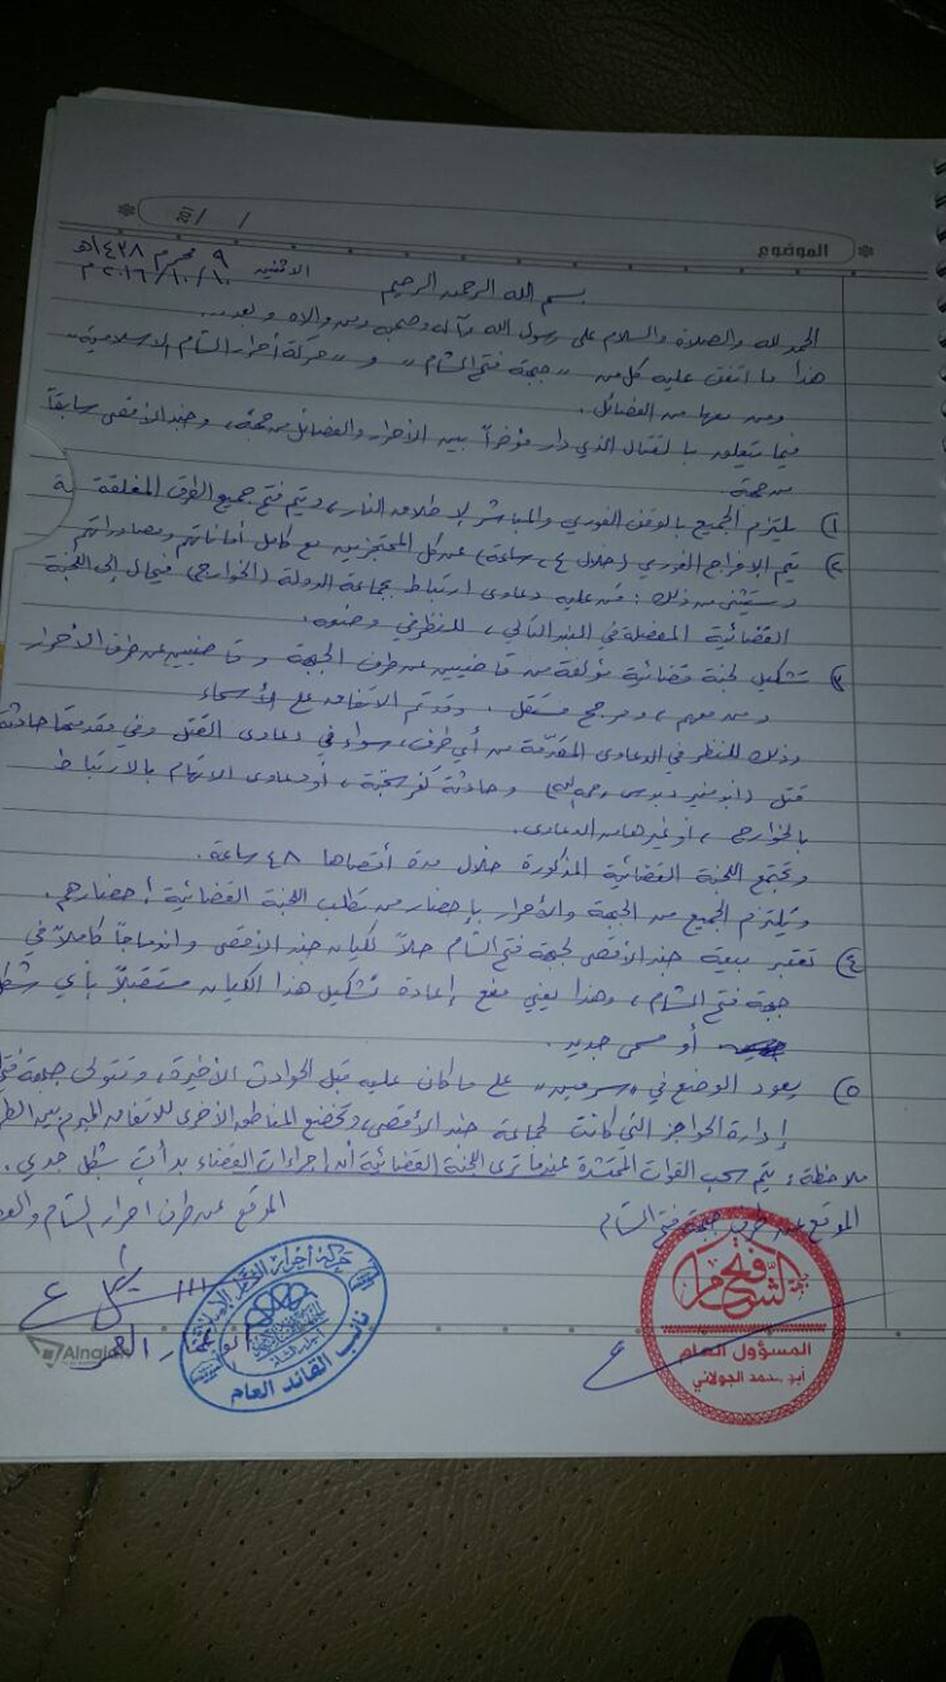 الموضوع
/ / 201
الاثنين ٩ محرم ١٤٣٨هـ
٢٠١٦/١٠/١٠ م
بسم الله الرحمن الرحيم
الحمد لله والصلاة والسلام على رسول الله وآله وصحبه ومن والاه وبعد..
هذا ما اتفق عليه كل من "جبهة فتح الشام" و "حركة أحرار الشام الاسلامية"
ومن معها من الفصائل.
فيما يتعلق بالقتال الذي دار مؤخراً بين الأحرار والفصائل من جهة، وجند الأقصى سابقاً
من جهة
١) يلتزم الجميع بالوقف الفوري والمباشر لإطلاق النار، ويتم فتح جميع الطرق المغلقة
٢) يتم الإفراج الفوري (خلال ٢٤ ساعة) عن كل المحتجزين مع كامل أماناتهم ومصادراتهم
ويستثنى من ذلك: من عليه دعاوى ارتباط بجماعة الدولة (الخوارج) فيحال إلى اللجنة
القضائية المفصلة في البند التالي، للنظر في وضعه.
٣) تشكيل لجنة قضائية مؤلفة من قاضيين عن طرف الجبهة وقاضيين عن طرف الأحرار
ومن معهم، ومرجح مستقل. وقد تم الاتفاق على الأسماء
وذلك للنظر في الدعاوى المقدمة من أي طرف، سواء في دعاوى القتل وفي مقدمتها حادثة
قتل (أبو منير دبوس رحمه الله) وحادثة كفرسجنة، أو دعاوى الاتهام بالارتباط
بالخوارج، أو غيرها من الدعاوى.
وتجتمع اللجنة القضائية المذكورة خلال مدة أقصاها ٤٨ ساعة.
ويلتزم الجميع من الجبهة والأحرار بإحضار من تطلب اللجنة القضائية إحضارهم.
٤) تعتبر بيعة جند الأقصى لجبهة فتح الشام حلاً لكيان جند الأقصى واندماجاً كاملاً في
جبهة فتح الشام، وهذا يعني منع إعادة تشكيل هذا الكيان مستقبلاً بأي شكل
أو مسمى جديد.
٥) يعود الوضع في "سرمين" على ما كان عليه قبل الحوادث الأخيرة، وتتولى جبهة فتح
إدارة الحواجز التي كانت لجماعة جند الأقصى، وتخضع المناطق الأخرى للاتفاق المبرم بين
ملاحظة: يتم سحب القوات المحتشدة عندما ترى اللجنة القضائية أن إجراءات القضاء بدأت بشكل جدي.
الموقع عن طرف جبهة فتح الشام
الموقع عن طرف احرار الشام
جبهة فتح الشام
المسؤول العام
أبو محمد الجولاني
حركة أحرار الشام الإسلامية
نائب القائد العام
العمر
Alnajah